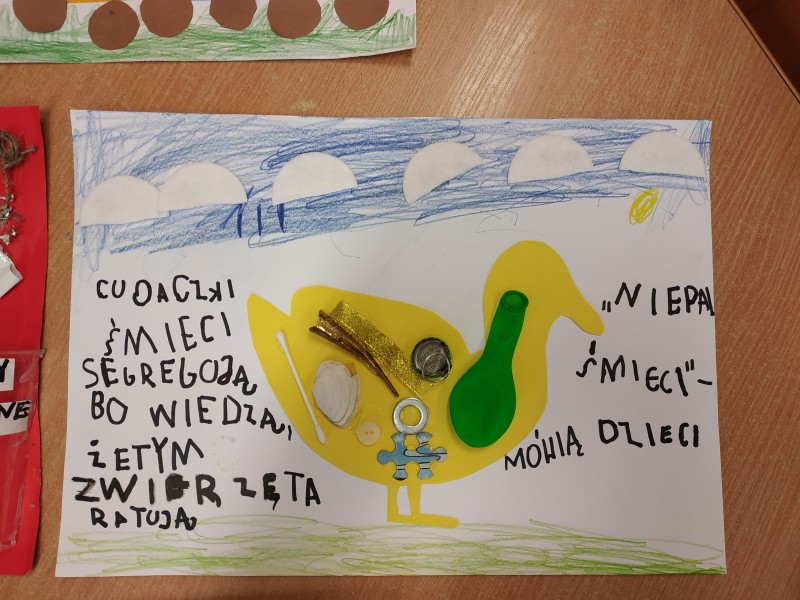 CUDACZKI
ŚMIECI
SEGREGOJĄ
BO WIEDZĄ,
ŻETYM
ZWIERZĘTA
RATUJĄ
„NIEPAL
ŚMIECI"-
MÓWIĄ DZIECI
Y
NE